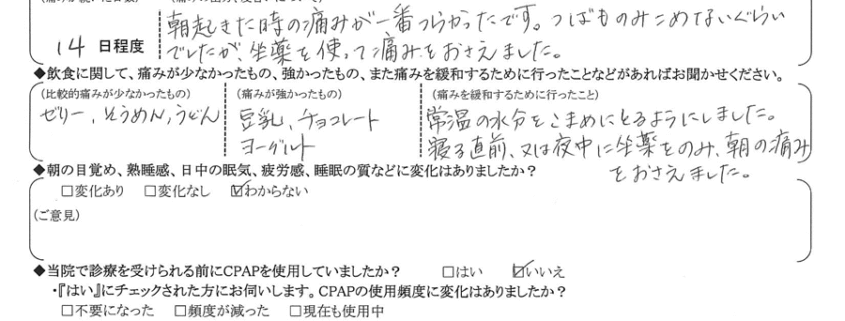 14 日程度
朝起きた時の痛みが一番つらかったです。つばものみこめないぐらい
でしたが、坐薬を使って痛みをおさえました。
◆飲食に関して、痛みが少なかったもの、強かったもの、また痛みを緩和するために行ったことなどがあればお聞かせください。
(比較的痛みが少なかったもの)
ゼリー、そうめん、うどん
(痛みが強かったもの)
豆乳、チョコレート
ヨーグルト
(痛みを緩和するために行ったこと)
常温の水分をこまめにとるようにしました。
寝る直前、又は夜中に坐薬をのみ、朝の痛み
をおさえました。
◆朝の目覚め、熟睡感、日中の眠気、疲労感、睡眠の質などに変化はありましたか?
□変化あり □変化なし ☑わからない
(ご意見)
◆当院で診療を受けられる前にCPAPを使用していましたか? □はい ☑いいえ
・『はい』にチェックされた方にお伺いします。CPAPの使用頻度に変化はありましたか?
□不要になった □頻度が減った □現在も使用中